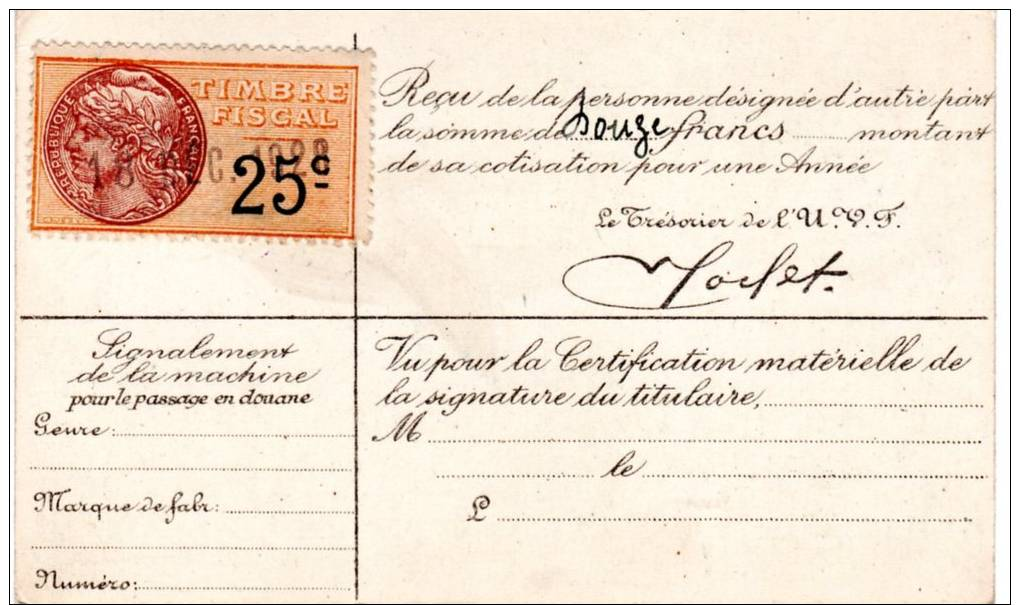 TIMBRE
FISCAL
RÉPUBLIQUE FRANÇAISE
18 DEC. 1928
25c
Reçu de la personne désignée d'autre part
la somme de Douze francs montant
de sa cotisation pour une Année
Le Trésorier de l'U.V.F.
Signalement
de la machine
pour le passage en douane
Genre:
Marque de fabr:
Numéro:
Vu pour la Certification matérielle de
la signature du titulaire,
M
le
L